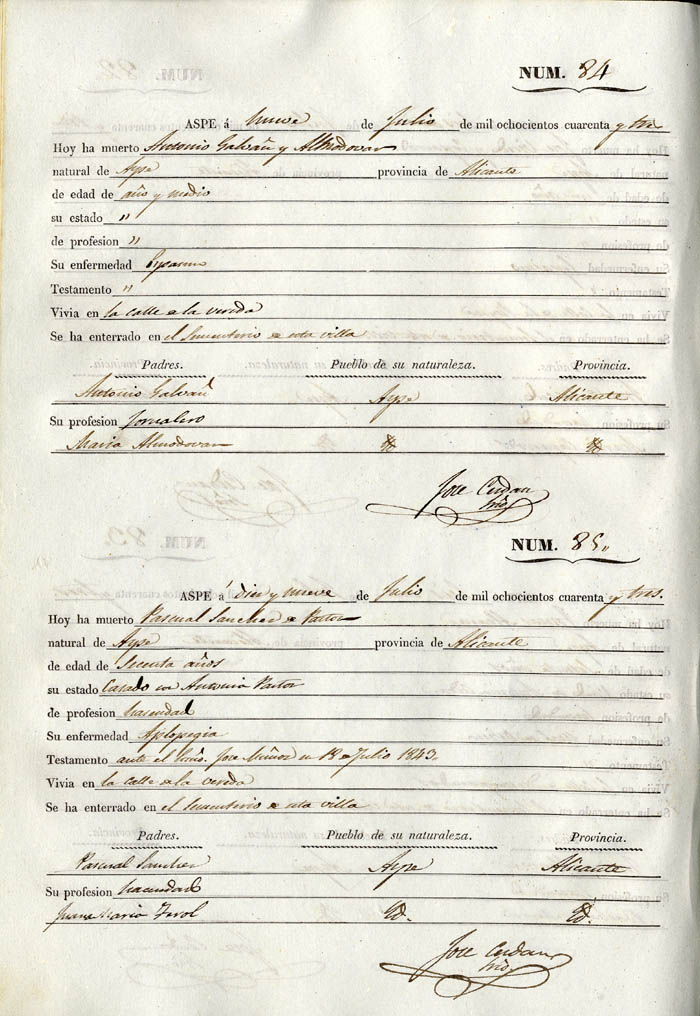 NUM. 84
ASPE á Nueve de Julio de mil ochocientos cuarenta y tres
Hoy ha muerto Antonio Galvañ y Almodovar
natural de Aspe provincia de Alicante
de edad de año y medio
su estado "
de profesion "
Su enfermedad
Testamento "
Vivia en la calle de la vereda
Se ha enterrado en el Sementerio de esta villa
Padres. Pueblo de su naturaleza. Provincia.
Antonio Galvañ Aspe Alicante
Su profesion Jornalero
Maria Almodovar
Jose Cerdan
NUM. 85
ASPE á Diez y nueve de Julio de mil ochocientos cuarenta y tres.
Hoy ha muerto Pascual Sanchez de Pastor
natural de Aspe provincia de Alicante
de edad de años
su estado Casado con Antonia Pastor
de profesion hacendad
Su enfermedad Aplopegia
Testamento ante el Jose Muñoz en 18 de Julio 1843.
Vivia en la calle de la vereda
Se ha enterrado en el Sementerio de esta villa
Padres. Pueblo de su naturaleza. Provincia.
Pascual Sanchez Aspe Alicante
Su profesion hacendad
Juana Maria Yd. Yd.
Jose Cerdan